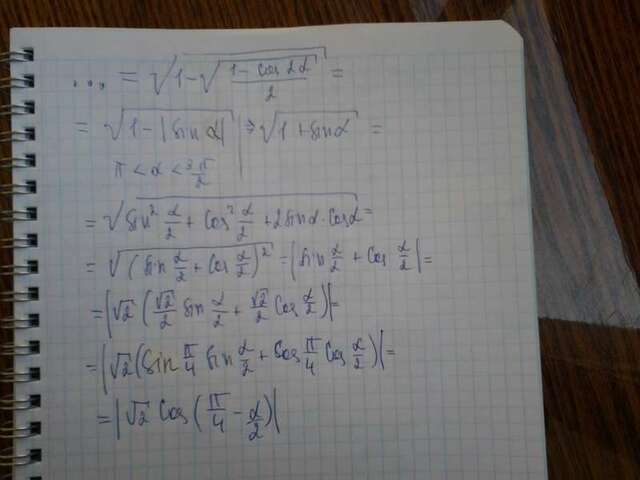 ... = √(1-√((1-cos 2α)/2)) =
= √(1-|sin α|) ⇒ √(1+sin α) =
π < α < 3π/2
= √(sin² α/2 + cos² α/2 + 2 sin α · cos α) =
= √((sin α/2 + cos α/2)²) = |sin α/2 + cos α/2| =
= |√2 (√2/2 sin α/2 + √2/2 cos α/2)| =
= |√2 (sin π/4 sin α/2 + cos π/4 cos α/2)| =
= |√2 cos (π/4 - α/2)|